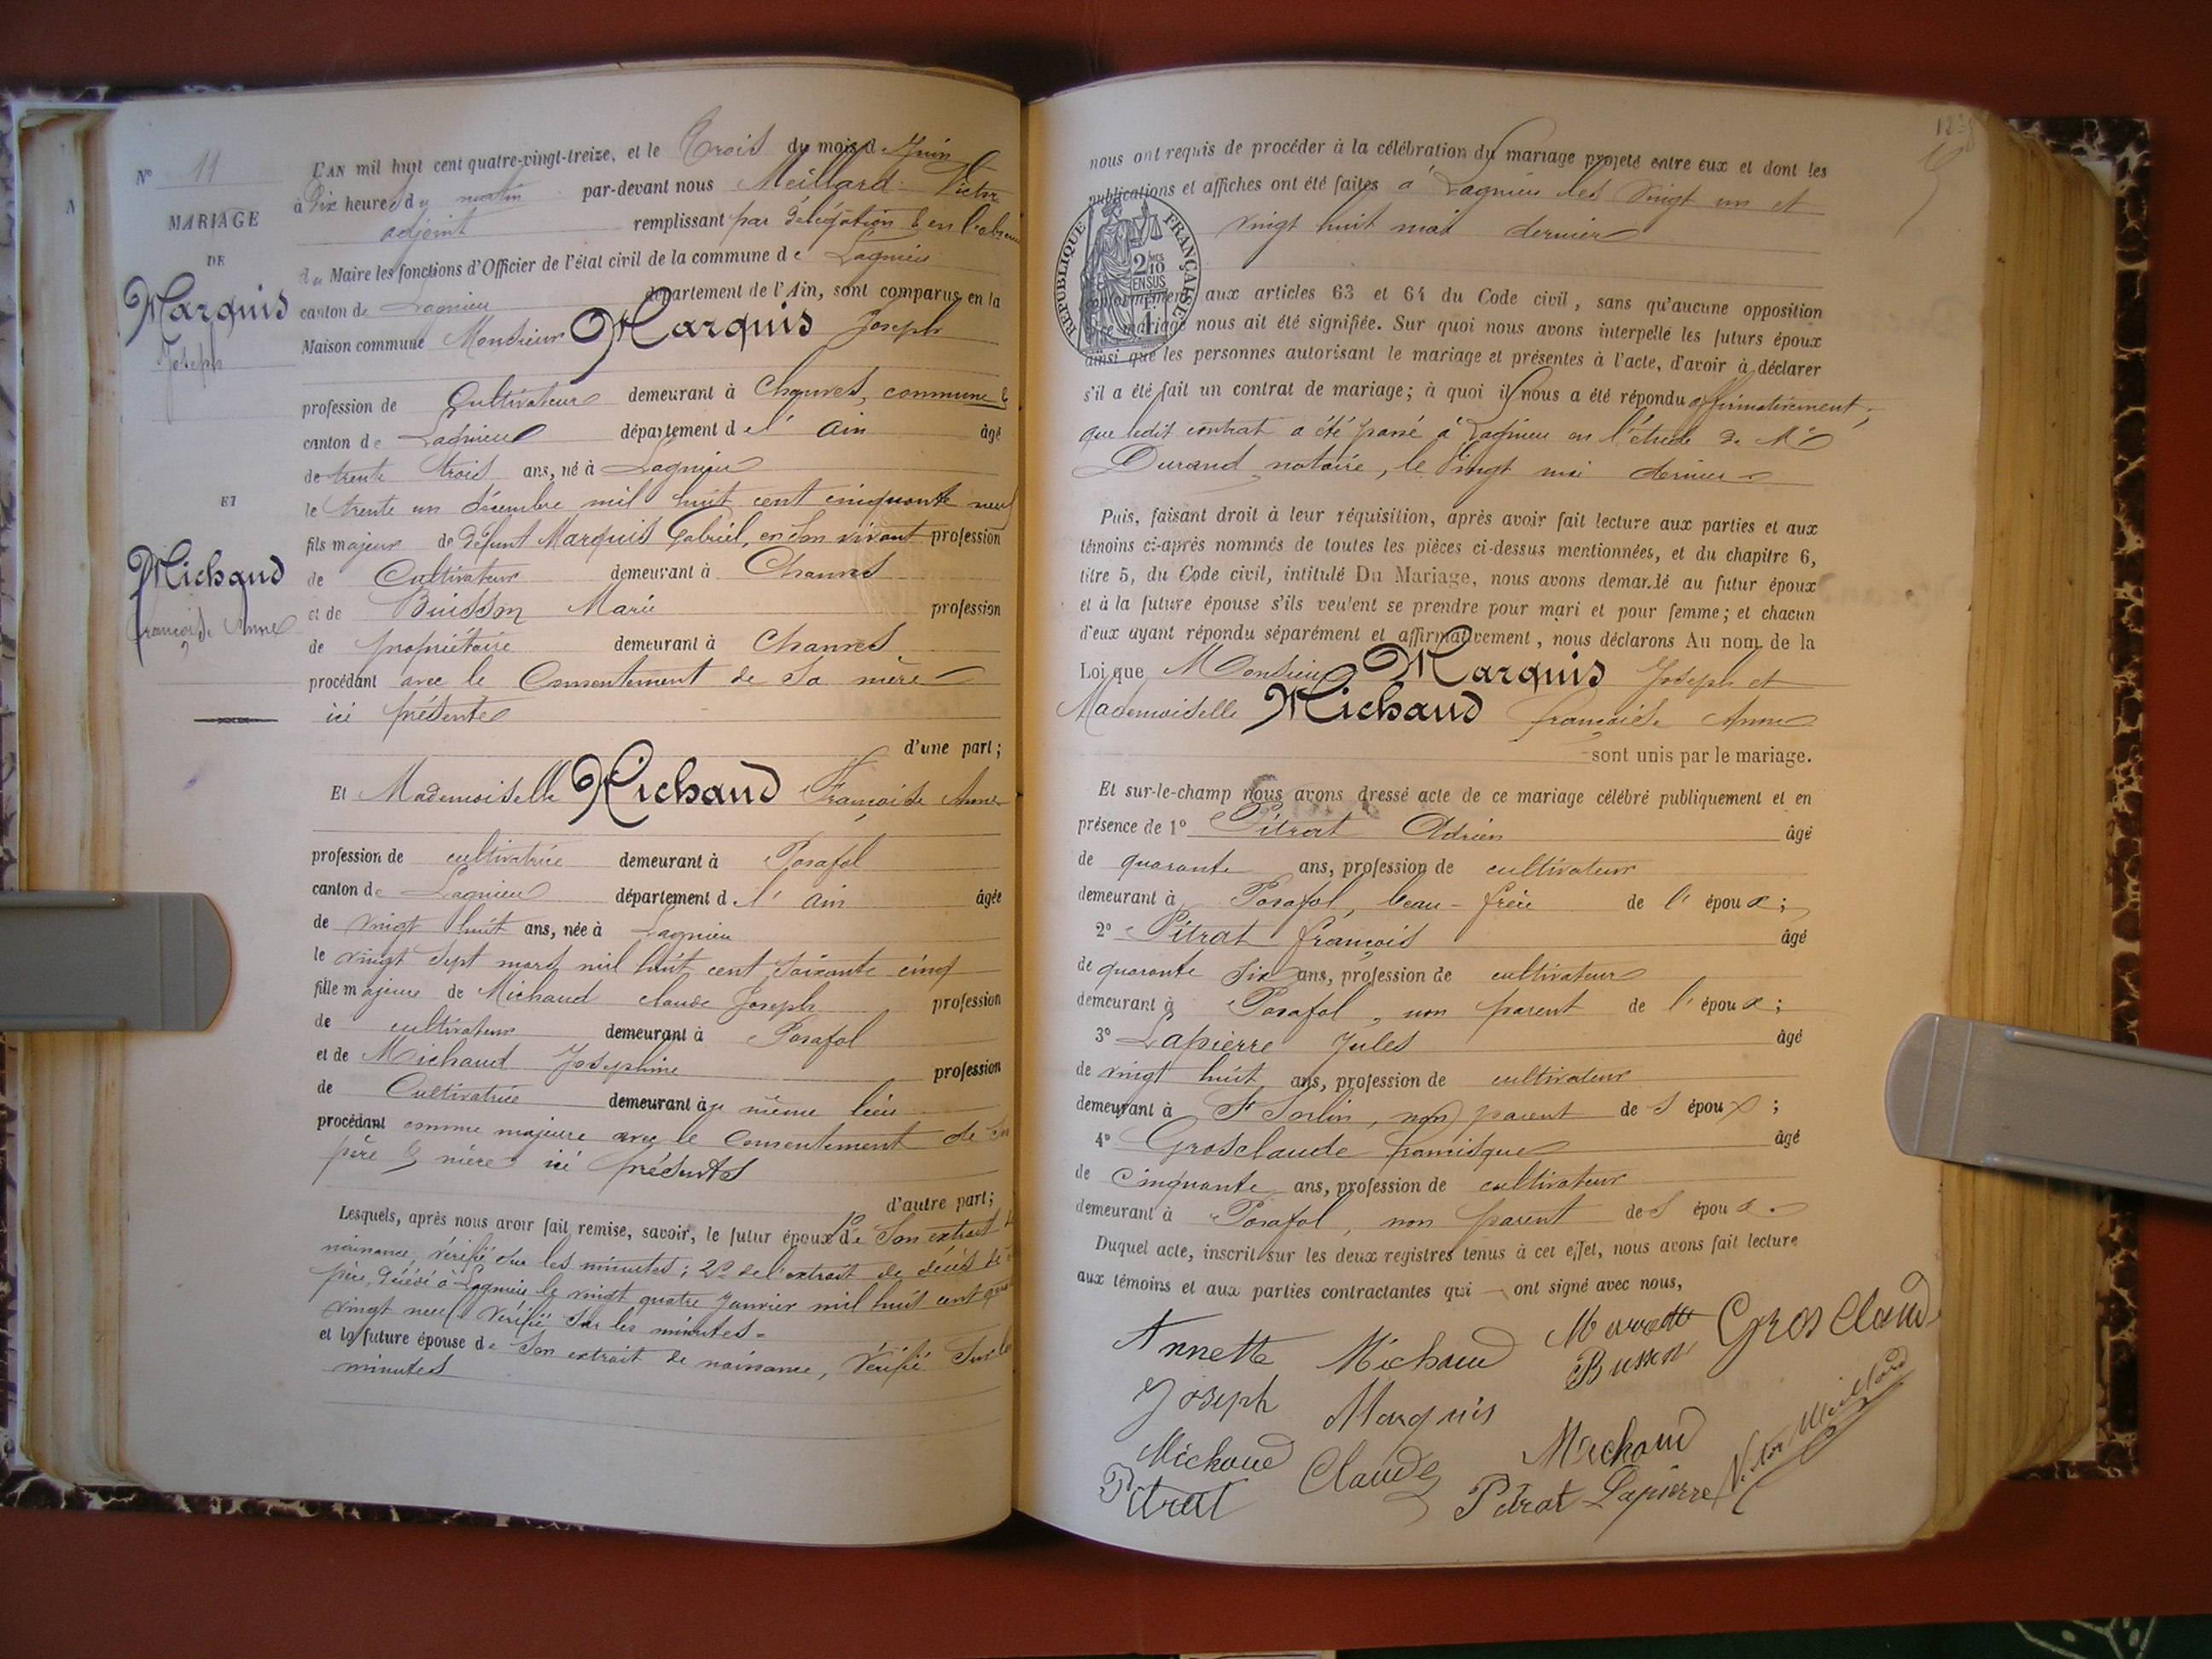 N° 11
MARIAGE
DE
Marquis
Joseph
ET
Michaud
Françoise Anne
L'AN mil huit cent quatre-vingt-treize, et le Trois du mois de Juin
à Dix heures du matin par-devant nous Meillard Victor
adjoint remplissant par délégation & en l'absence
du Maire les fonctions d'Officier de l'état civil de la commune de Lagnieu
canton de Lagnieu département de l'Ain, sont comparus en la
Maison commune Monsieur Marquis Joseph
profession de Cultivateur demeurant à Chanves, commune &
canton de Lagnieu département de l' Ain âgé
de trente trois ans, né à Lagnieu
le trente un décembre mil huit cent cinquante neuf
fils majeur de défunt Marquis Gabriel, en son vivant profession
de Cultivateur demeurant à Chanves
et de Buisson Marie profession
de propriétaire demeurant à Chanves
procédant avec le Consentement de sa mère
ici présente
d'une part;
Et Mademoiselle Michaud Françoise Anne
profession de cultivatrice demeurant à Posafol
canton de Lagnieu département de l' Ain âgée
de vingt huit ans, née à Lagnieu
le vingt sept mars mil huit cent soixante cinq
fille majeure de Michaud Claude Joseph profession
de cultivateur demeurant à Posafol
et de Michaud Joséphine profession
de Cultivatrice demeurant au même lieu
procédant comme majeure avec le Consentement de son
père & mère ici présents
d'autre part;
Lesquels, après nous avoir fait remise, savoir, le futur époux 1° de Son extrait de
naissance, vérifié sur les minutes; 2° de l'extrait de décès de
père, décédé à Lagnieu le vingt quatre Janvier mil huit cent quatre
vingt neuf vérifié sur les minutes
et la future épouse de Son extrait de naissance, Vérifié Sur les
minutes
nous ont requis de procéder à la célébration du mariage projeté entre eux et dont les
publications et affiches ont été faites à Lagnieu les vingt un et
vingt huit mai dernier
RÉPUBLIQUE FRANÇAISE
2/10 EN SUS
conformément aux articles 63 et 64 du Code civil, sans qu'aucune opposition
à ce mariage nous ait été signifiée. Sur quoi nous avons interpellé les futurs époux
ainsi que les personnes autorisant le mariage et présentes à l'acte, d'avoir à déclarer
s'il a été fait un contrat de mariage; à quoi il nous a été répondu affirmativement,
que ledit contrat a été passé à Lagnieu en l'étude de Me
Durand notaire, le vingt mai dernier
Puis, faisant droit à leur réquisition, après avoir fait lecture aux parties et aux
témoins ci-après nommés de toutes les pièces ci-dessus mentionnées, et du chapitre 6,
titre 5, du Code civil, intitulé Du Mariage, nous avons demandé au futur époux
et à la future épouse s'ils veulent se prendre pour mari et pour femme; et chacun
d'eux ayant répondu séparément et affirmativement, nous déclarons Au nom de la
Loi que Monsieur Marquis Joseph et
Mademoiselle Michaud Françoise Anne
sont unis par le mariage.
Et sur-le-champ nous avons dressé acte de ce mariage célébré publiquement et en
présence de 1° Pitrat Adrien âgé
de quarante ans, profession de cultivateur
demeurant à Posafol, beau-frère de l' époux;
2° Pitrat François âgé
de quarante six ans, profession de cultivateur
demeurant à Posafol, non parent de l' époux;
3° Lapierre Jules âgé
de vingt huit ans, profession de cultivateur
demeurant à St Sorlin, non parent des époux;
4° Grosclaude Francisque âgé
de Cinquante ans, profession de cultivateur
demeurant à Posafol, non parent des époux.
Duquel acte, inscrit sur les deux registres tenus à cet effet, nous avons fait lecture
aux témoins et aux parties contractantes qui ont signé avec nous,
Annette Michaud Buisson Grosclaude
Joseph Marquis
Michaud Claude Michaud Victor Meillard
Pitrat Pitrat Lapierre